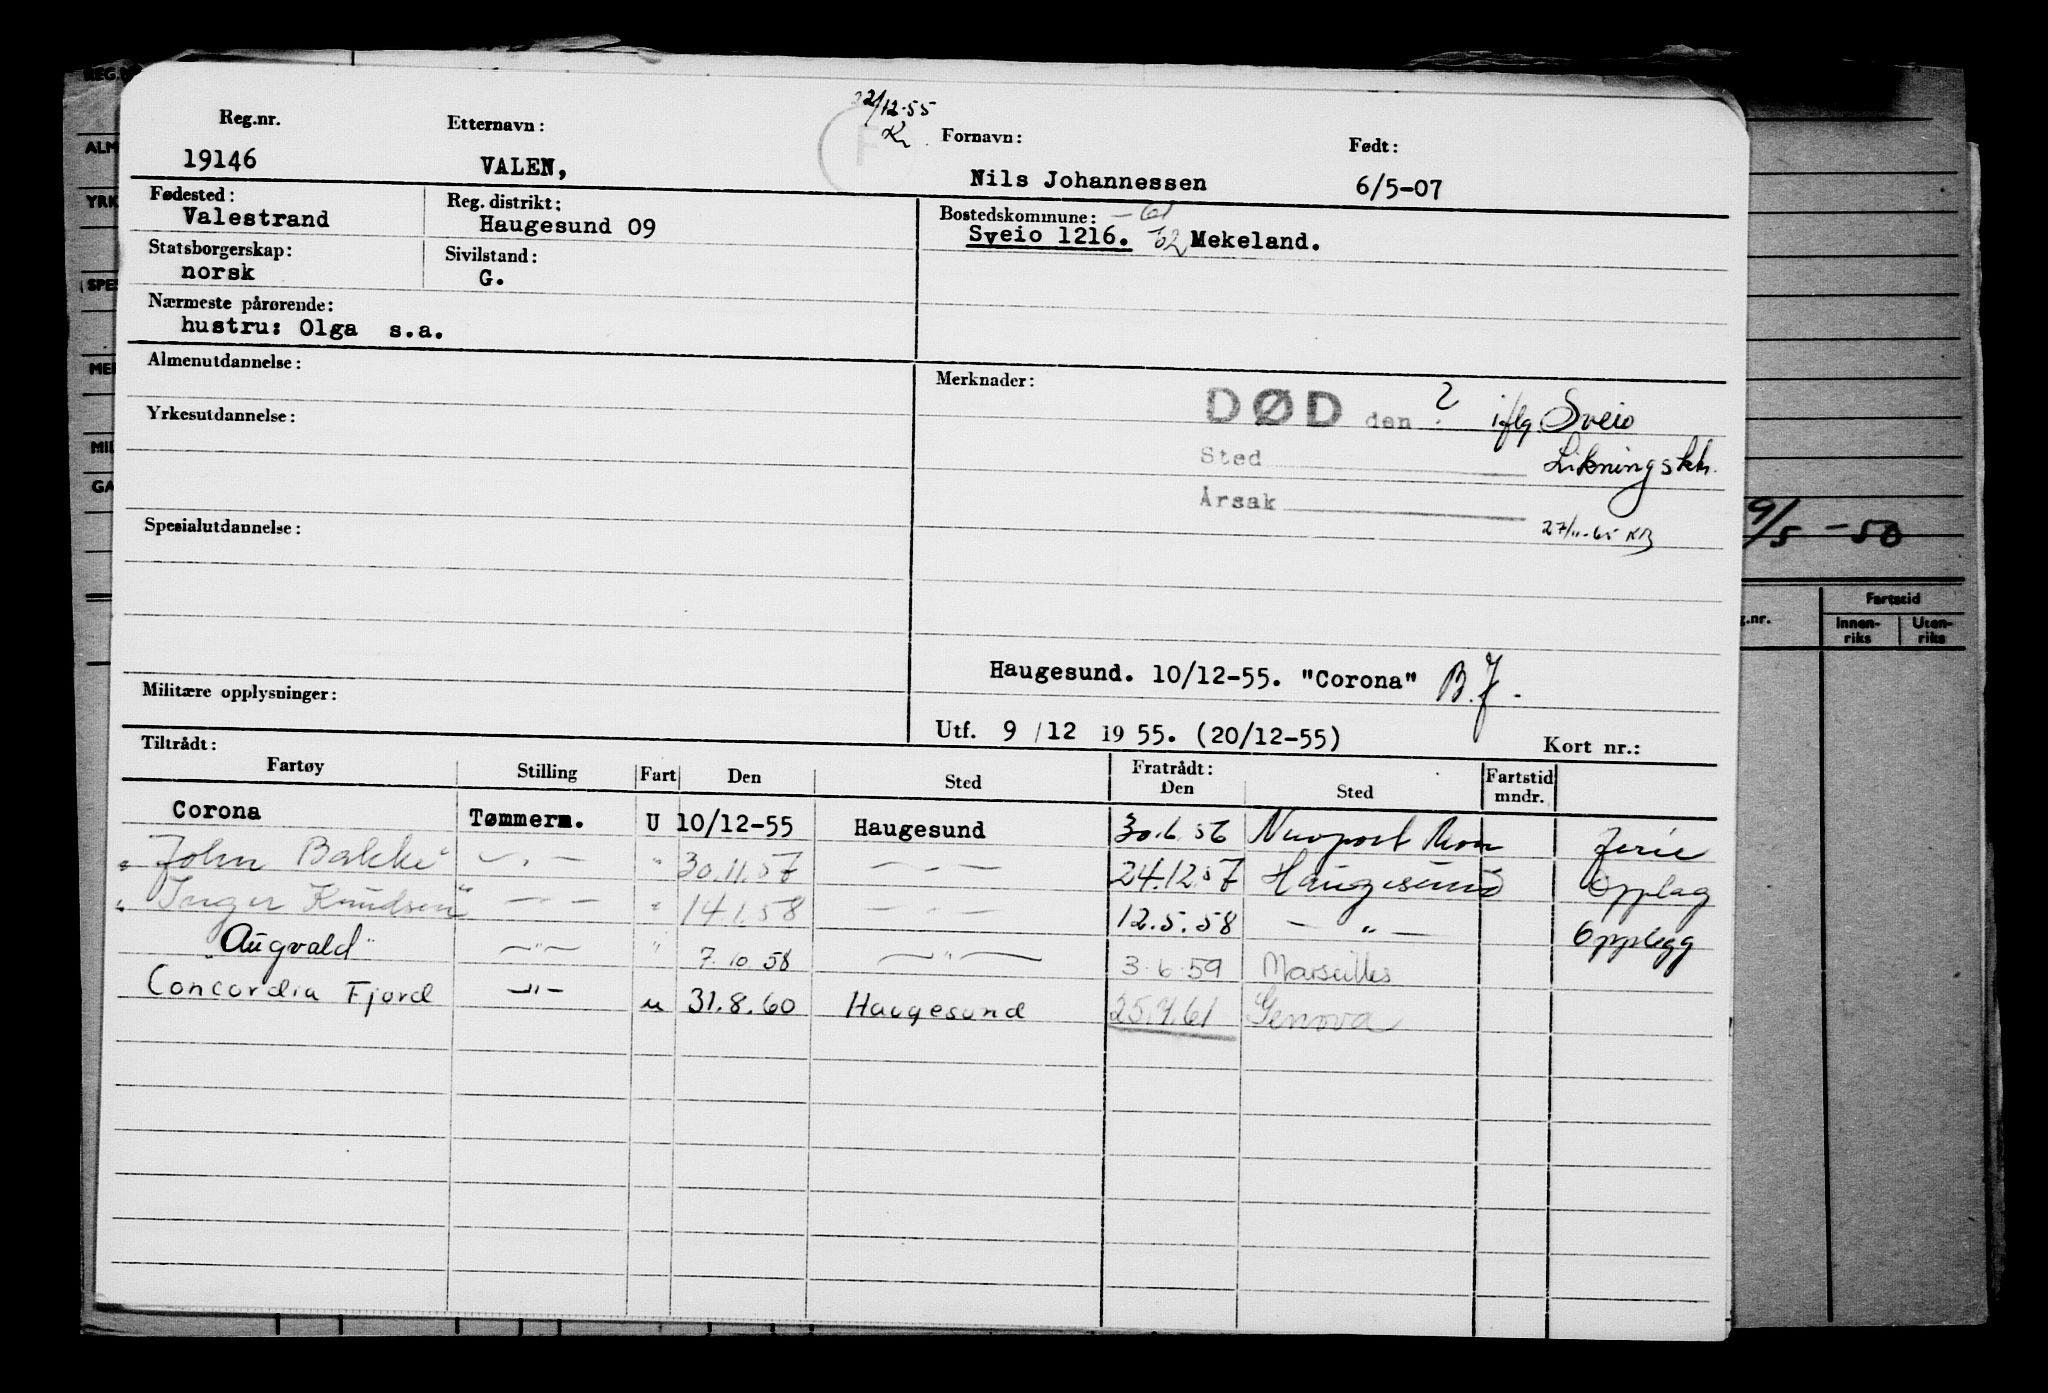 22/12-55
Reg.nr. Etternavn: Fornavn: Født:
19146 VALEN, Nils Johannessen 6/5-07
Fødested: Reg. distrikt: Bostedskommune: -61
Valestrand Haugesund 09 Sveio 1216. 62 Mekeland.
Statsborgerskap: Sivilstand:
norsk G.
Nærmeste pårørende:
hustru: Olga s.a.
Almenutdannelse:
Merknader:
DØD den ? iflg. Sveio
Yrkesutdannelse:
Sted Likningskt.
Årsak
Spesialutdannelse:
27/11-65 KB
9/5-50
Fartstid
g.nr. Innen-riks Uten-riks
Haugesund. 10/12-55. "Corona" B.J.
Militære opplysninger:
Utf. 9 /12 1955. (20/12-55)
Kort nr.:
Tiltrådt: Fratrådt:
Fartøy Stilling Fart Den Sted Den Sted Fartstid mndr.
Corona Tømmerm. U 10/12-55 Haugesund 30.6.56 Newport Mon Ferie
"John Bakke" - " - " 30.11.57 - " - 24.12.57 Haugesund Opplag
"Inger Knudsen" - " - " 14.1.58 - " - 12.5.58 - " - Opplegg
"Augvald" - " - " 7.10.58 - " - 3.6.59 Marseilles
Concordia Fjord - " - u 31.8.60 Haugesund 25.4.61 Genova